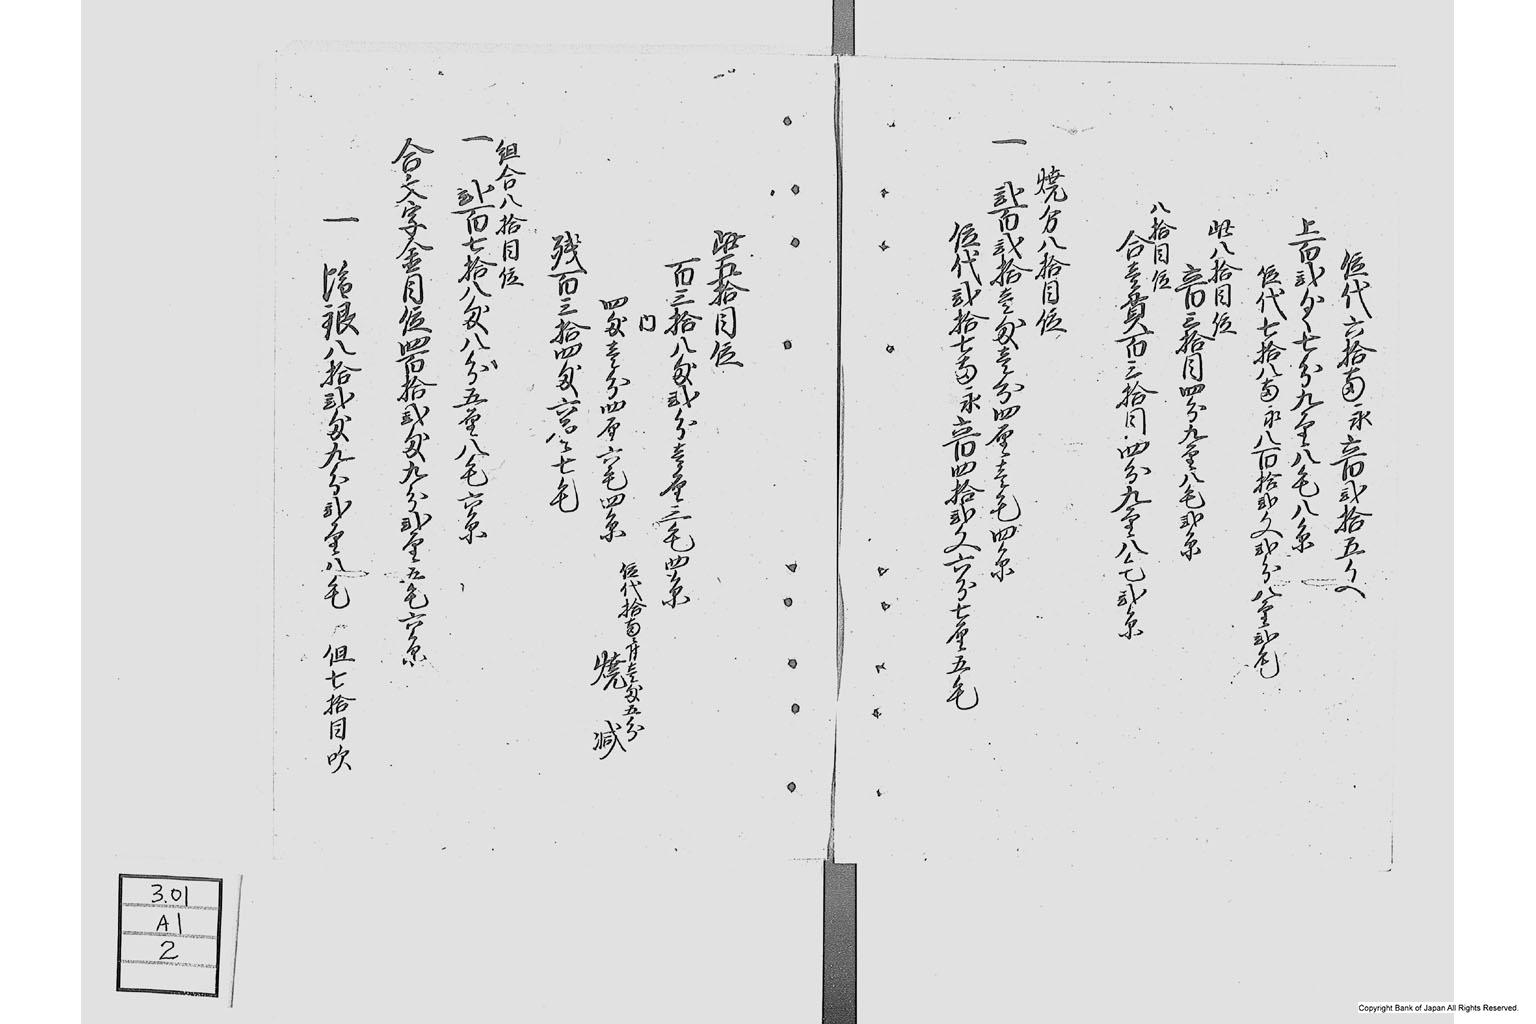 位代六拾両永六百弐拾五文
上百弐匁七分九厘八毛八糸
位代七拾八両永八百拾弐文弐分八厘弐毛
此八拾目位
六百三拾目四分九厘八毛弐糸
八拾目位
合壱貫百三拾目四分九厘八毛弐糸
焼分八拾目位
一 弐百弐拾壱匁壱分四厘壱毛四糸
位代弐拾七両永六百四拾弐文六分七厘五毛
此五拾目位
百三拾八匁弐分壱厘三毛四糸
内
四匁壱分四厘六毛四糸
位代拾両ニ付壱匁五分
焼減
残百三拾四匁六厘七毛
組合八拾目位
一 弐百七拾八匁八分五厘八毛六糸
合文字金目位四百拾弐匁九分弐厘五毛六糸
一 銀八拾弐匁九分弐厘八毛 但七拾目吹
3.01
A1
2
Copyright Bank of Japan All Rights Reserved.